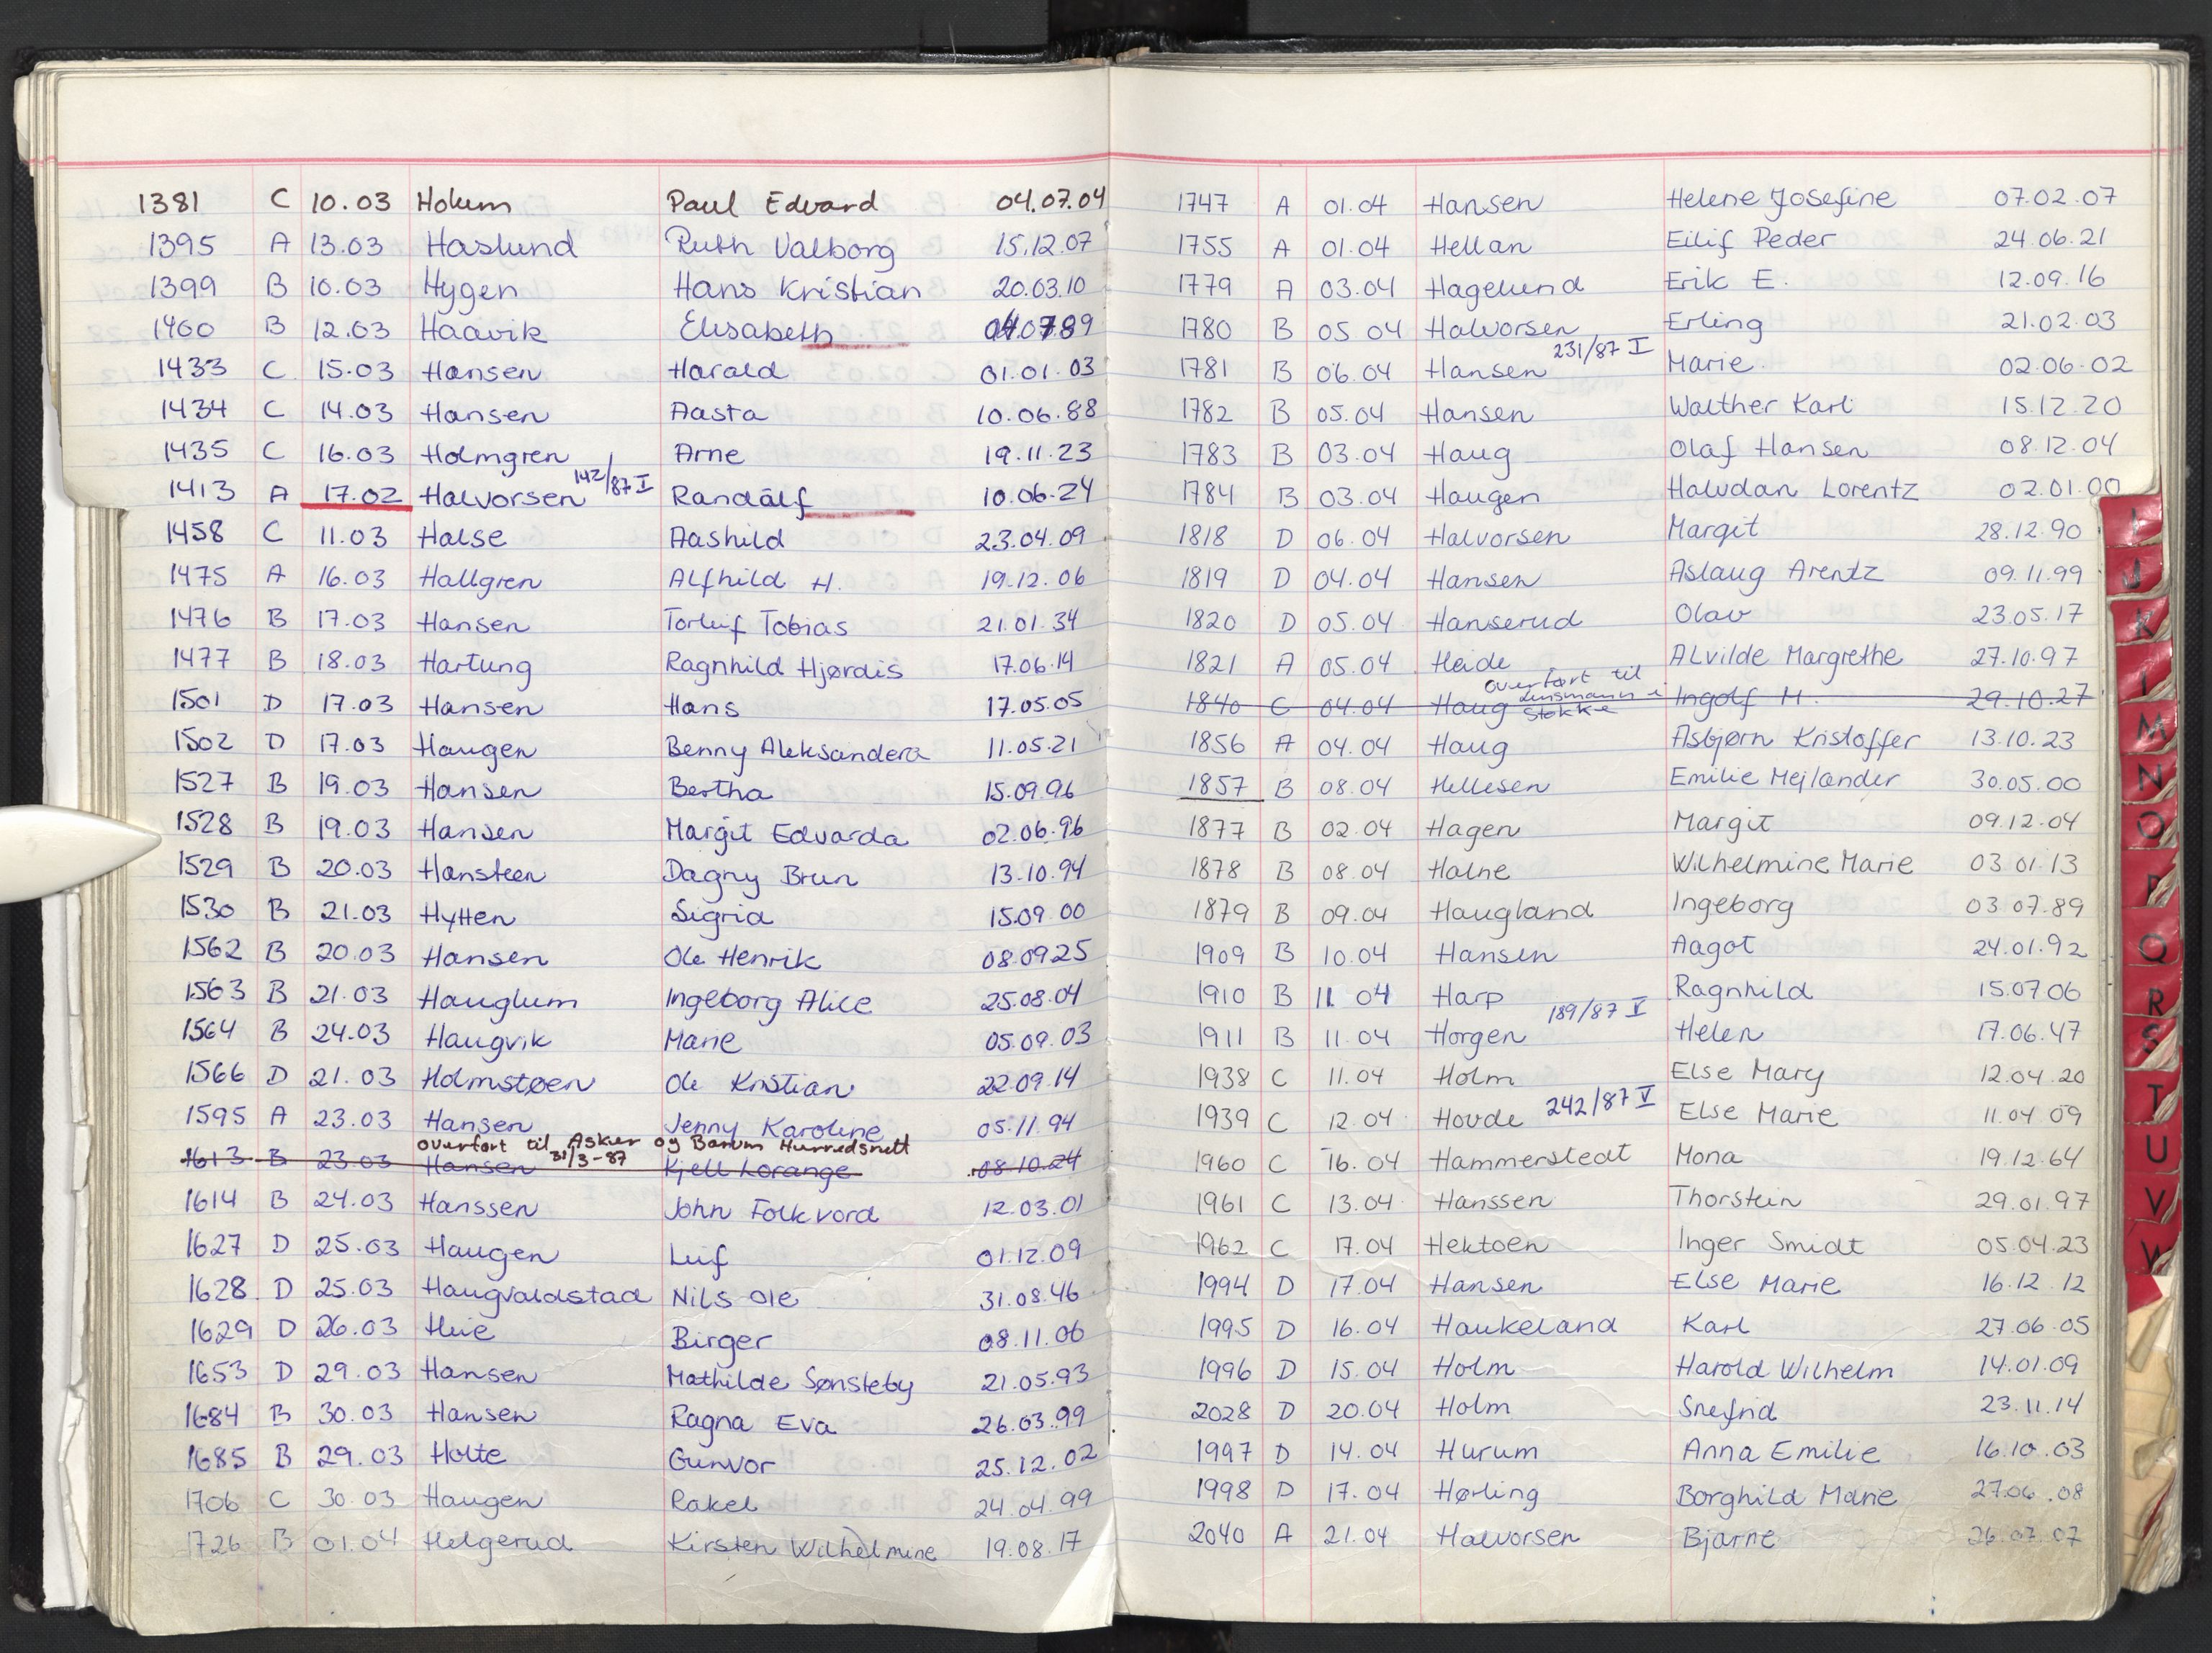 1381 C 10.03 Holum Paul Edvard 04.07.04
1395 A 13.03 Haslund Ruth Valborg 15.12.07
1399 B 10.03 Hygen Hans Kristian 20.03.10
1400 B 12.03 Haavik Elisabeth 04.07.89
1433 C. 15.03 Hansen Harald 01.01.03
1434 C 14.03 Hansen Aasta 10.06.88
1435 C 16.03 Holmgren Arne 19.11.23
142/87 I
1413 A 17.02 Halvorsen Randälf 10.06.24
1458 C 11.03 Halse Aashild 23.04.09
1475 A 16.03 Hallgren Alfhild H. 19.12.06
1476 B 17.03 Hansen Torleif Tobias 21.01.34
1477 B 18.03 Hartung Ragnhild Hjørdis 17.06.14
1501 D 17.03 Hansen Hans 17.05.05
1502 D 17.03 Haugen Benny Aleksandera 11.05.21
1527 B 19.03 Hansen Bertha 15.09.96
1528 B 19.03 Hansen Margit Edvarda 02.06.96
1529 B 20.03 Hansteen Dagny Brun 13.10.94
1530 B 21.03 Hytten Sigrid 15.09.00
1562 B 20.03 Hansen Ole Henrik 08.09.25
1563 B 21.03 Hauglum Ingeborg Alice 25.08.04
1564 B 24.03 Haugvik Marie 05.09.03
1566 D 21.03 Holmstøen Ole Kristian 22.09.14
1595 A 23.03 Hansen Jenny Karoline 05.11.94
overført til Asker og Bærum Herredsrett
31/3-87
1613 B 23.03 Hansen Kjell Lorange 08.10.24
1614 B 24.03 Hanssen John Folkvord 12.03.01
1627 D 25.03 Haugen Leif 01.12.09
1628 D 25.03 Haugvaldstad Nils Ole 31.08.46
1629 D 26.03 Heie Birger 08.11.06
1653 D 29.03 Hansen Mathilde Sønsteby 21.05.93
1684 B 30.03 Hansen Ragna Eva 26.03.99
1685 B 29.03 Holte Gunvor 25.12.02
1706 C 30.03 Haugen Rakel 24.04.99
1726 B 01.04 Helgerud Kirsten Wilhelmine 19.08.17
1747 A 01.04 Hansen Helene Josefine 07.02.07
1755 A 01.04 Hellan Eilif Peder 24.06.21
1779 A 03.04 Hagelund Erik E. 12.09.16
1780 B 05 04 Halvorsen Erling 21.02.03
231/87 I
1781 B 06.04 Hansen Marie 02.06.02
1782 B 05.04 Hansen Walther Karl 15.12.20
1783 B 03.04 Haug Olaf Hansen 08.12.04
1784 B 03.04 Haugen Halvdan Lorentz 02.01.00
1818 D 06.04 Halvorsen Margit 28.12.90
1819 D 04.04 Hansen Aslaug Arentz 09.11.99
1820 D 05.04 Hanserud Olav 23.05.17
1821 A 05.04 Heide Alvilde Margrethe 27.10.97
overført til
lensmann i
1840 C 04.04 Haug Stokke Ingolf H. 29.10.27
1856 A 04.04 Haug Asbjørn Kristoffer 13.10.23
1857 B 08.04 Hellesen Emilie Mejlænder 30.05.00
1877 B 02.04 Hagen Margit 09.12.04
1878 B 08.04 Halne Wilhelmine Marie 03.01.13
1879 B 09.04 Haugland Ingeborg 03.07.89
1909 B 10.04 Hansen Aagot 24.01.92
1910 B 11.04 Harp Ragnhild 15.07.06
189/87 V
1911 B 11.04 Horgen Helen 17.06.47
1938 C 11.04 Holm Else Mary 12.04.20
1939 C 12.04 Hovde 242/87 V Else Marie 11.04 09
1960 C 16.04 Hammerstedt Mona 19.12.64
1961 C 13.04 Hanssen Thorstein 29.01.97
1962 C 17.04 Hektoen Inger Smidt 05.04.23
1994 D 17.04 Hansen Else Marie 16.12.12
1995 D 16.04 Haukeland Karl 27.06.05
1996 D 15.04 Holm Harold Wilhelm 14.01.09
2028 D 20.04 Holm Snefrid 23.11.14
1997 D 14.04 Hurum Anna Emilie 16.10.03
1998 D 17.04 Hørling Borghild Marie 27.06.08
2040 A 21.04 Halvorsen Bjarne 26.07.07
I
J
K
M
N
O
P
Q
R
S
T
U
V
W